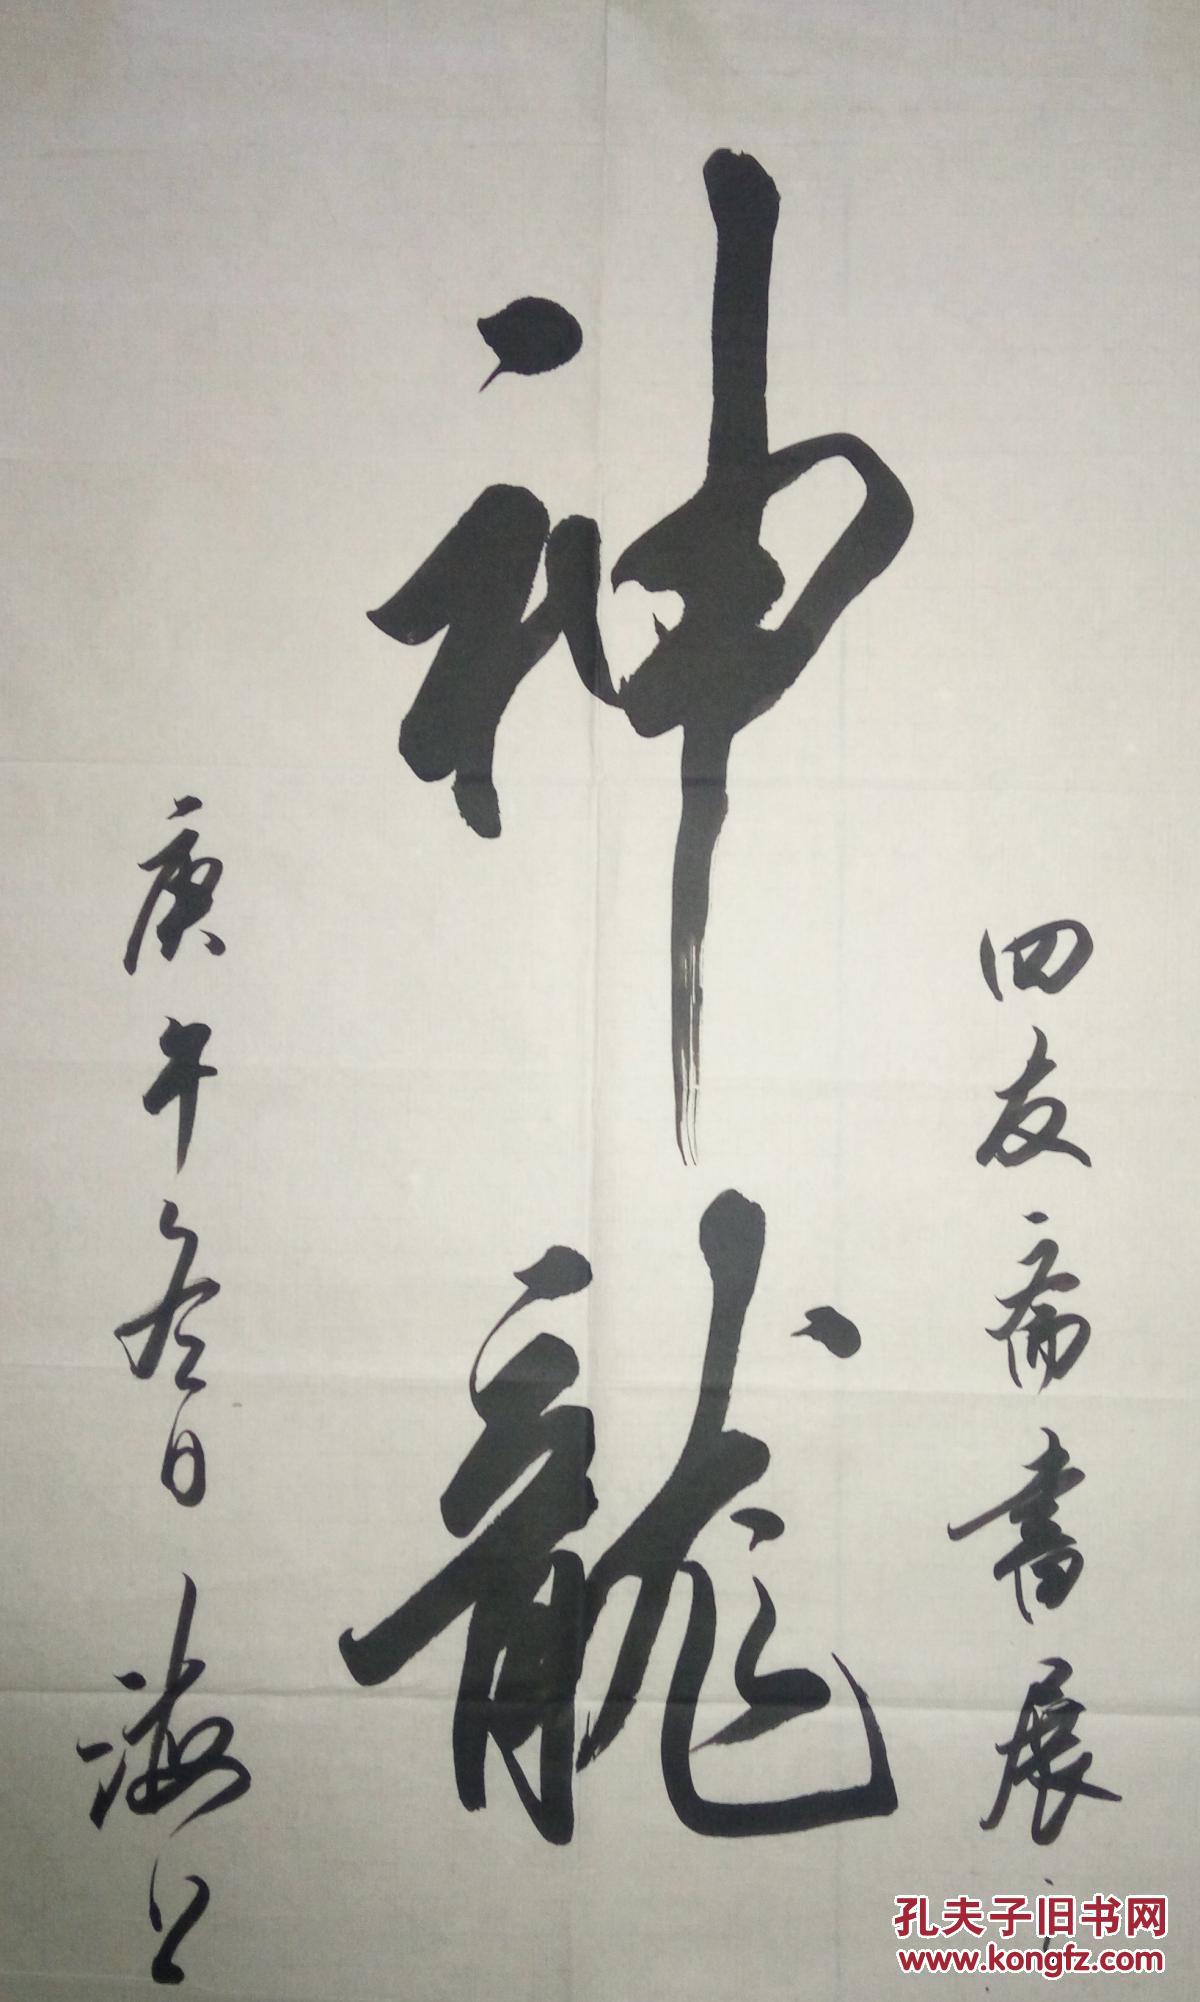 四友斋書展
神龍
庚午冬日海
孔夫子旧书网
www.kongfz.com